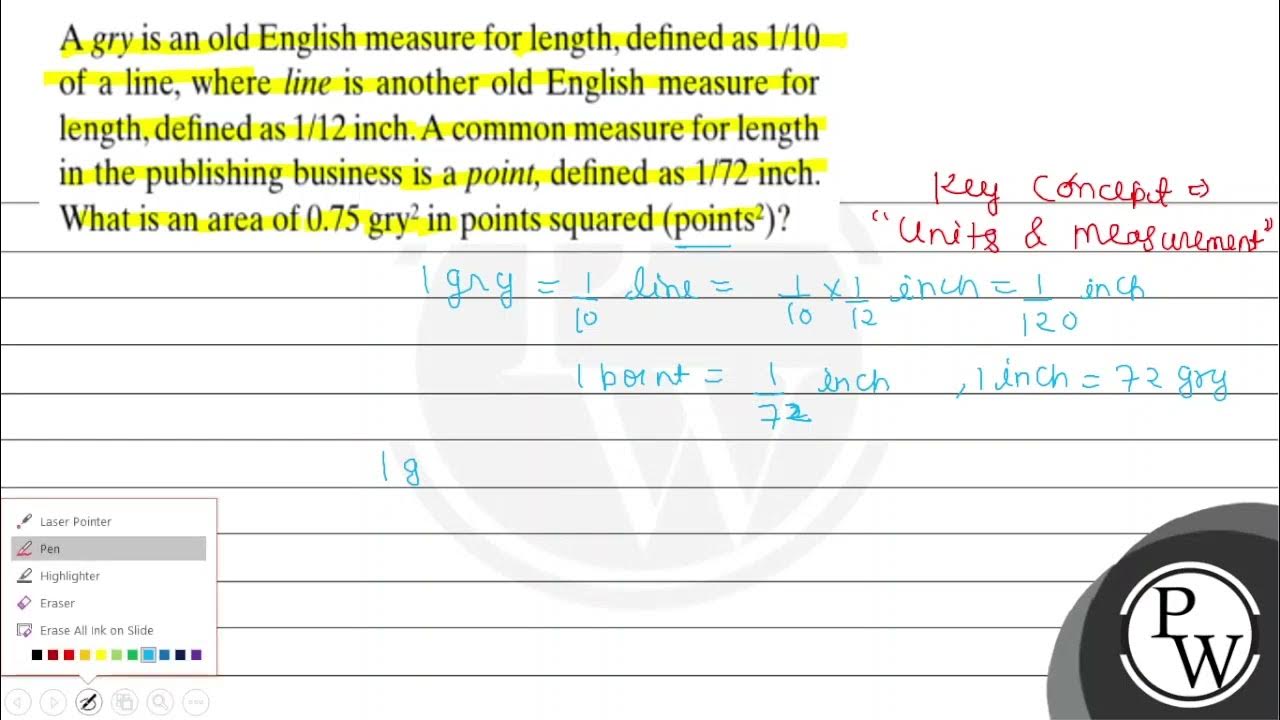 A gry is an old English measure for length, defined as 1/10
of a line, where line is another old English measure for
length, defined as 1/12 inch. A common measure for length
in the publishing business is a point, defined as 1/72 inch.
What is an area of 0.75 gry² in points squared (points²)?
Key Concept ⇒
"Units & Measurement"
1 gry = 1/10 line = 1/10 × 1/12 inch = 1/120 inch
1 point = 1/72 inch , 1 inch = 72 gry
1 g
Laser Pointer
Pen
Highlighter
Eraser
Erase All Ink on Slide
PW
PW